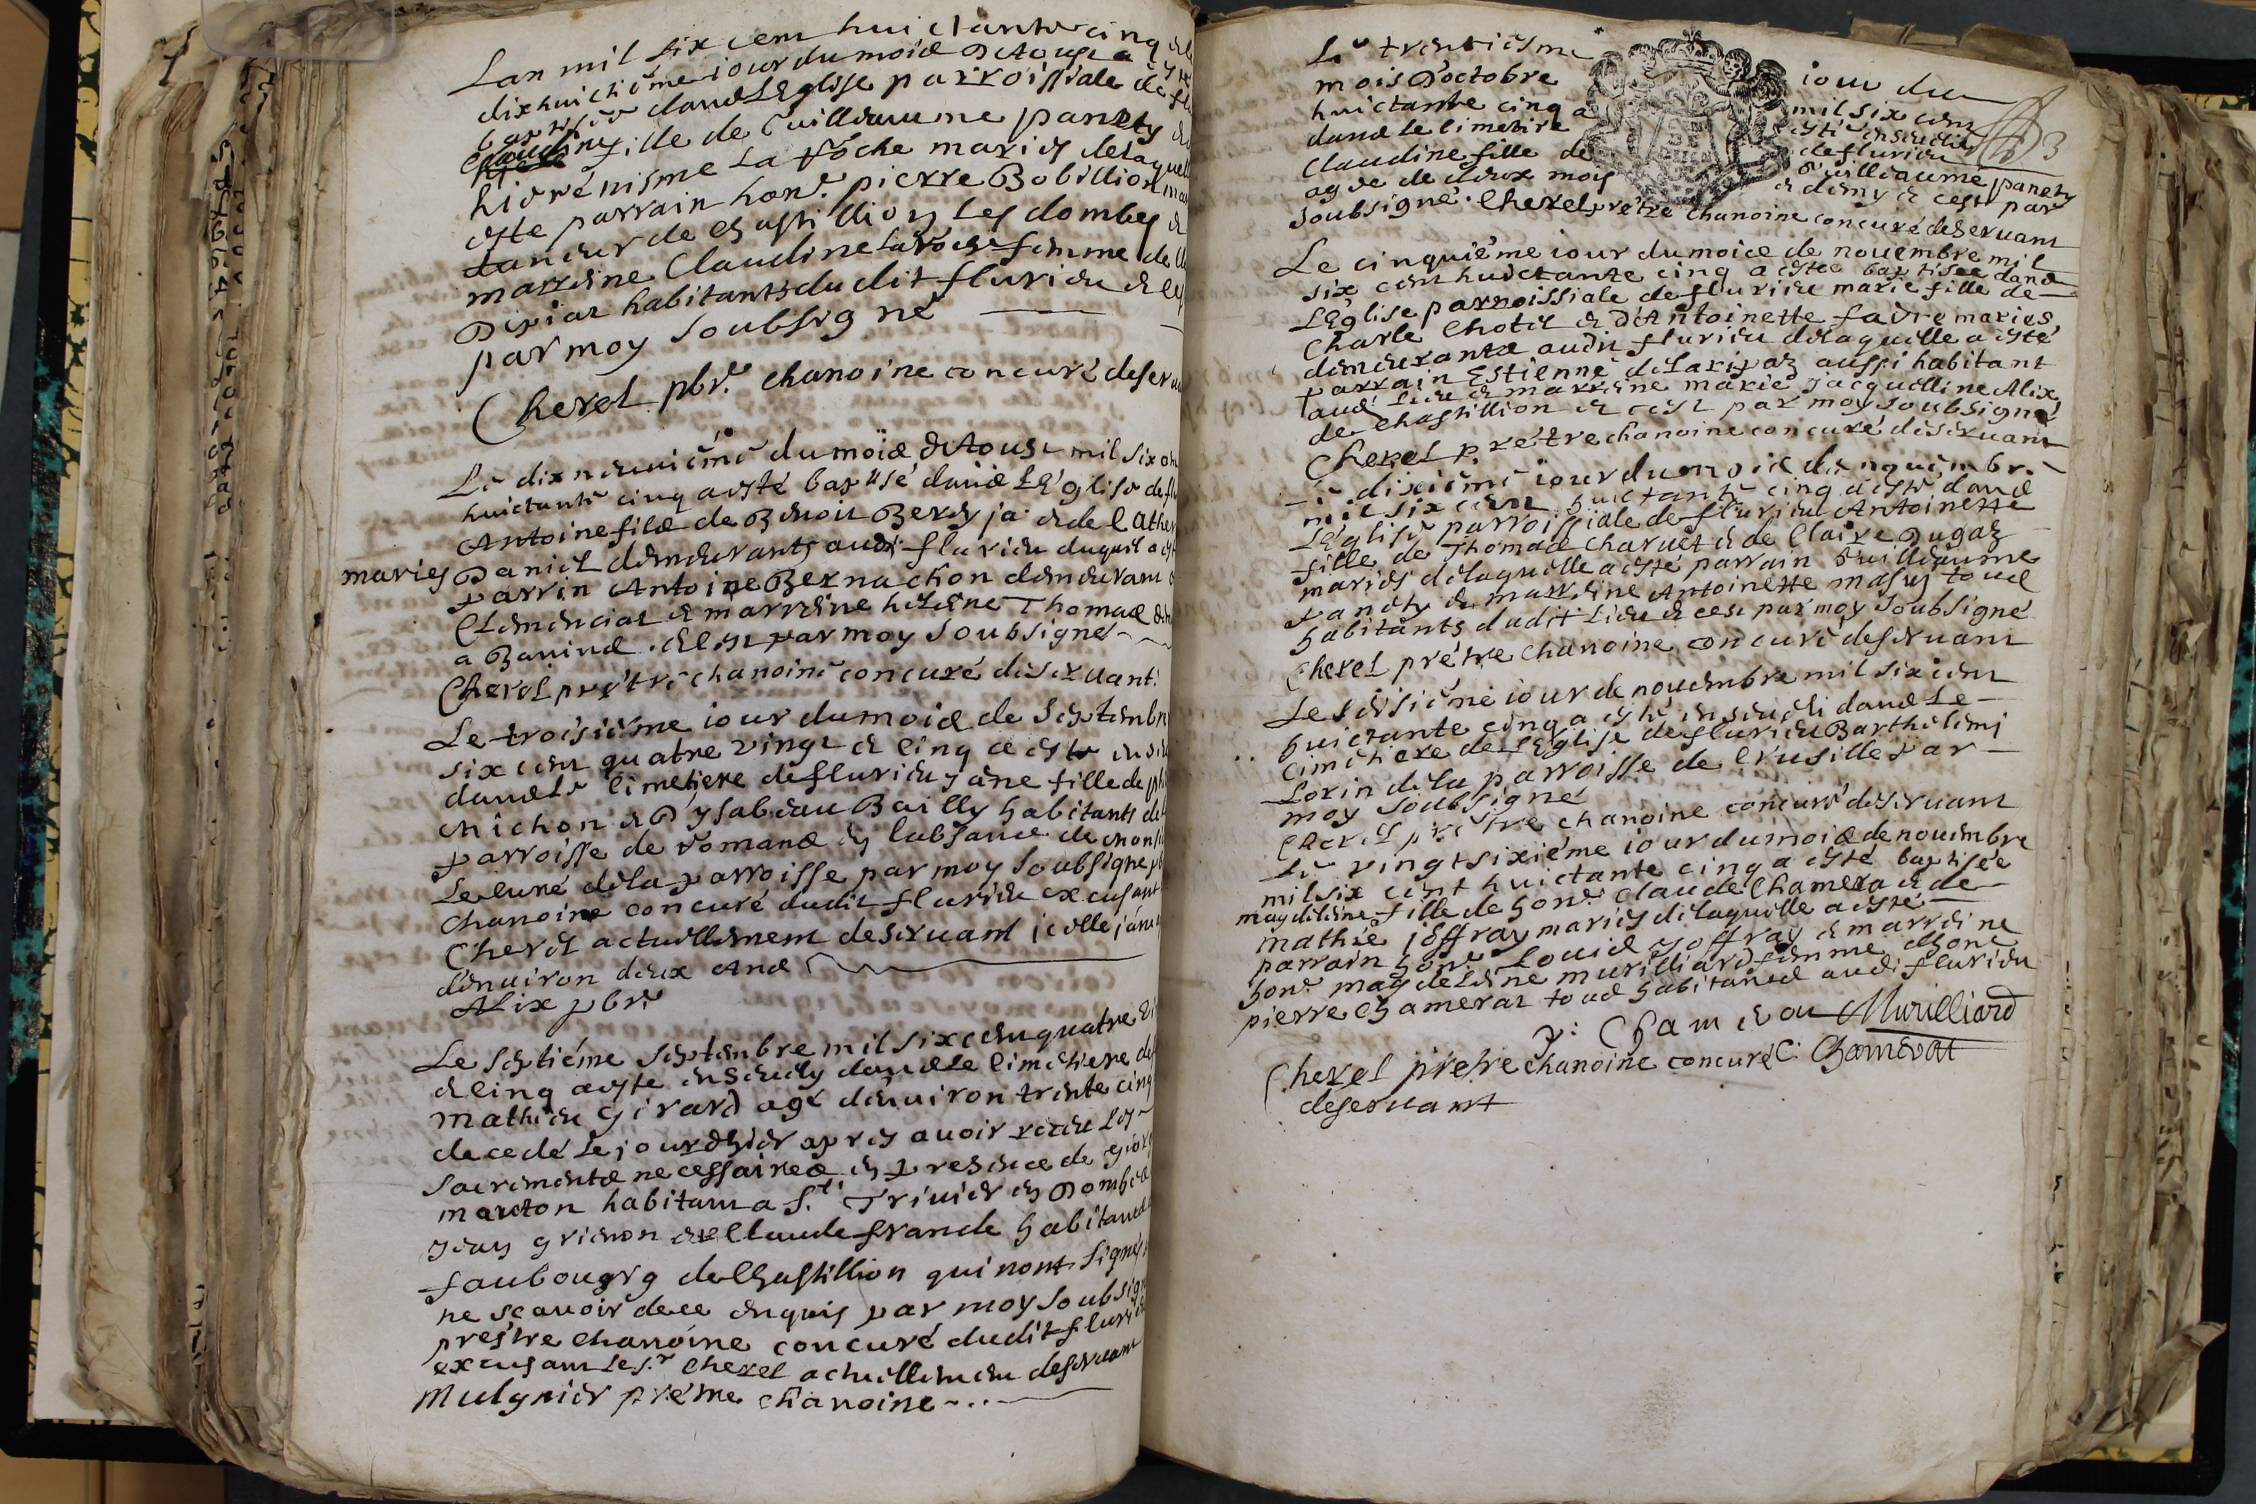 Lan mil six cem huictante cinq
dixhuictiéme iour du moia D'Aoust a
baptisée dans L'Eglise parroissiale de
Claudine fille de Guillaume panety
hierénisme La Róche mariés delaquelle
este parrain hone. pierre Bobillion
tandur de Chastillion Les dombes
marrine Claudine Laroche femme de
habitants dudit flurieu
par moy soubsigné
Cherel pbr.e chanoine concuré deserua
Le dixneuuiéme du moia d'Aoust mil six
huictante cinq a esté baptisé dans L'Eglise de
Antoine fils de Benoit Berdy ja. et de Cathe
maries Daniel demeurants audi flurieu duquel a
parrin Antoine Bernachon demeurant
Clemencia et marrine heleine Thomas
a Baniuel. et par moy soubsigné
Cherel prétre chanoine concuré deseruant
Le troisiéme iour du moia de Septembre
six cem quatre vingt et cinq a esté
dans Le Cimetiere de fluriey jáne fille de
Michon et D'ysabeau Bailly habitants de
parroisse de romans en labsance de mons
Le curé de la parroisse par moy soubsigné
chanoine concuré dudit fluriu excusant
Cherel actuellement deseruant icelle
denuiron deux Ans
Alix pbre
Le Septiéme Septembre mil six cem quatre vi
et cinq a este enseuely dans Le Cimetiere de
Mathieu Girard agé denuiron trente cinq
decedé Le jourdhier apres auoir receu Les
sacrements necessaires en presence de
marcton habitam a St. Triuier en Dombes
jean grienon et Claude frande habitans
faubougrg de Chastillion qui nont signé
ne scauoir de ce enquis par moy soubsig
prestre chanoine concuré dudit fluri
excusam Le Sr. Cherel actuellement deseruant
Mulgnier prétre chanoine
Le trentiesme iour du
mois D'octobre mil six cem
huictante cinq a esté enseueli 3
dans Le Cimetire de fluriu
Claudine fille de Guilleaume panety
agee de deux mois et demy et cest par
soubsigné. Cherel prétre chanoine concuré deseruam
Le cinquiéme iour du moia de nouembre mil
six cem huictante cinq a estee baptisee dans
L'Eglise parroissiale de fluriu marie fille de
Charle Chotel et d'Antoinette faure maries
demeurants audit fluriu delaquelle a esté
parrain Estienne de Larisas aussi habitant
aud. Lieu et marreine marie jacquelline Alix
de Chastillion et cest par moy soubsigné
Cherel prétre chanoine concuré deseruant
Le dixiéme iour du moia de nouembre
mil six cem huictante cinq a esté dans
L'Eglise parroissiale de fluriu Antoinette
fille de Thomas Charuet et de Claire Dugas
mariés delaquelle a esté parrain Guilleaume
panety et marreine Antoinette masuy tous
habitants dudit Lieu et cest par moy soubsigné
Cherel prétre chanoine concuré deseruant
Le seisiéme iour de nouembre mil six cem
huictante cinq a esté enseueli dans Le
Cimetiere de L'Eglise de fluriu Barthelemj
Lorin de la parroisse de Crusille par
moy soubsigné
Cherel prétre chanoine concuré deseruant
Le vingtsixiéme iour du moia de nouembre
mil six cent huictante cinq a esté baptisée
magdeleine fille de hon.e Claude Chamera et de
mathie joffray mariés delaquelle a esté
parrain hon.e Louis joffray et marreine
hon.e magdeleine murilliard femme d'hone
pierre Chamerat tous habitans audi fluriu
p: Chamerat Murilliard
Cherel pretre chanoine concuré C: Chamerat
deseruant